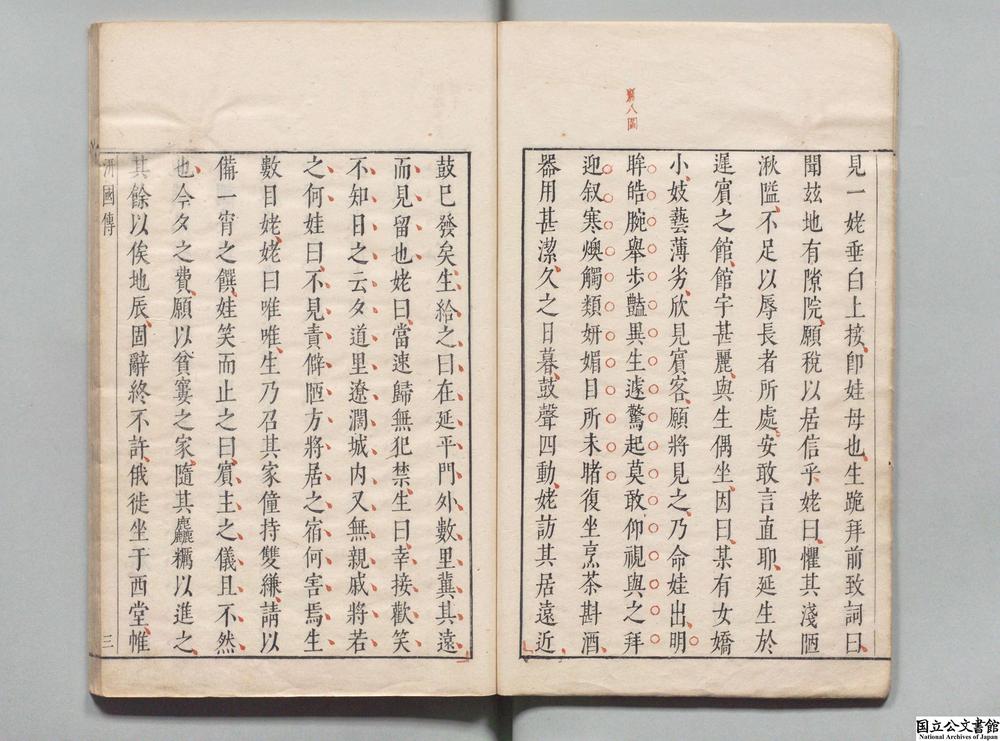 見一姥垂白上接卽娃母也生跪拜前致詞曰
聞玆地有隙院願稅以居信乎姥曰懼其淺陋
湫隘不足以辱長者所處安敢言直耶延生於
遲賓之館館宇甚麗與生偶坐因曰某有女嬌
小妓藝薄劣欣見賓客願將見之乃命娃出明
眸皓腕舉步豔異生遽驚起莫敢仰視與之拜
迎叙寒燠觸類妍媚目所未睹復坐烹茶斟酒
器用甚潔久之日暮鼓聲四動姥訪其居遠近
鼓已發矣生給之曰在延平門外數里冀其遠
而見留也姥曰當速歸無犯禁生曰幸接歡笑
不知日之云夕道里遼濶城内又無親戚將若
之何娃曰不見責僻陋方將居之宿何害焉生
數目姥姥曰唯唯生乃召其家僮持雙縑請以
備一宵之饌娃笑而止之曰賓主之儀且不然
也今夕之費願以貧窶之家隨其麤糲以進之
其餘以俟地辰固辭終不許俄徙坐于西堂帷
汧國傳
三
國立公文書館
National Archives of Japan